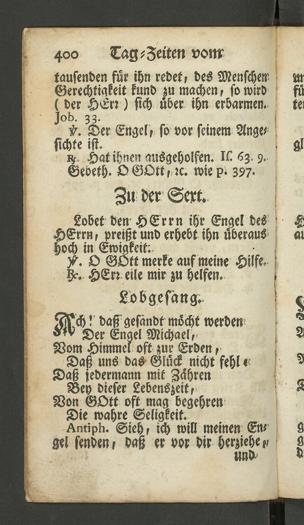 400 Tag-Zeiten vom
tausenden für ihn redet, des Menschen
Gerechtigkeit kund zu machen, so wird
(der HErr) sich über ihn erbarmen.
Job. 33.
℣. Der Engel, so vor seinem Ange-
sichte ist.
℟. Hat ihnen ausgeholfen. Is. 63. 9.
Gebeth. O GOtt, ꝛc. wie p. 397.
Zu der Sext.
Lobet den HErrn ihr Engel des
HErrn, preißt und erhebt ihn überaus
hoch in Ewigkeit.
℣. O GOtt merke auf meine Hilfe.
℟. HErr eile mir zu helfen.
Lobgesang.
Ach! daß gesandt möcht werden
Der Engel Michael,
Vom Himmel oft zur Erden,
Daß uns das Glück nicht fehl:
Daß jedermann mit Zähren
Bey dieser Lebenszeit,
Von GOtt oft mag begehren
Die wahre Seligkeit.
Antiph. Sieh, ich will meinen En-
gel senden, daß er vor dir herziehe,
und